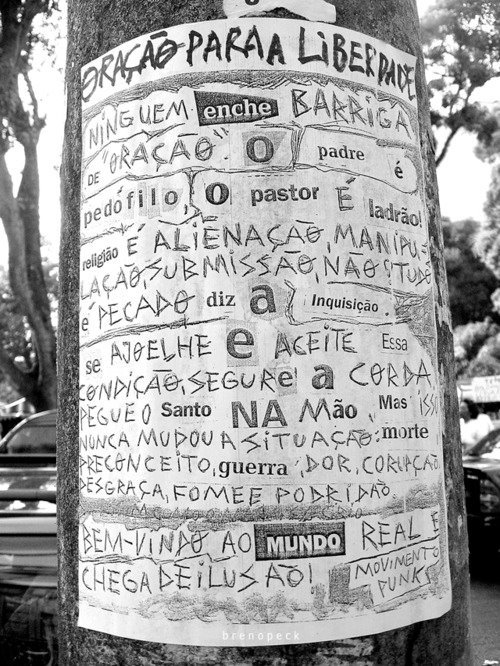 ORAÇÃO PARA A LIBERDADE
NINGUEM enche BARRIGA
DE "ORAÇÃO". O padre é
pedófilo, o pastor É ladrão!
religião É ALIENAÇÃO, MANIPU-
LAÇÃO, SUBMISSÃO, NÃO
é PECADO diz a Inquisição.
se AJOELHE e ACEITE Essa
CONDIÇÃO, SEGURe e a CORDA
PEGUE O Santo NA MÃo. Mas ISSO
NUNCA MUDOU A SITUAÇÃO: morte
PRECONCEITO, guerra, DOR, CORUPÇÃO
DESGRAÇA, FOME E PODRIDÃO.
BEM-VINDO AO MUNDO REAL E
CHEGA DE ILUSÃO!
MOVIMENTO
PUNK
brenopeck